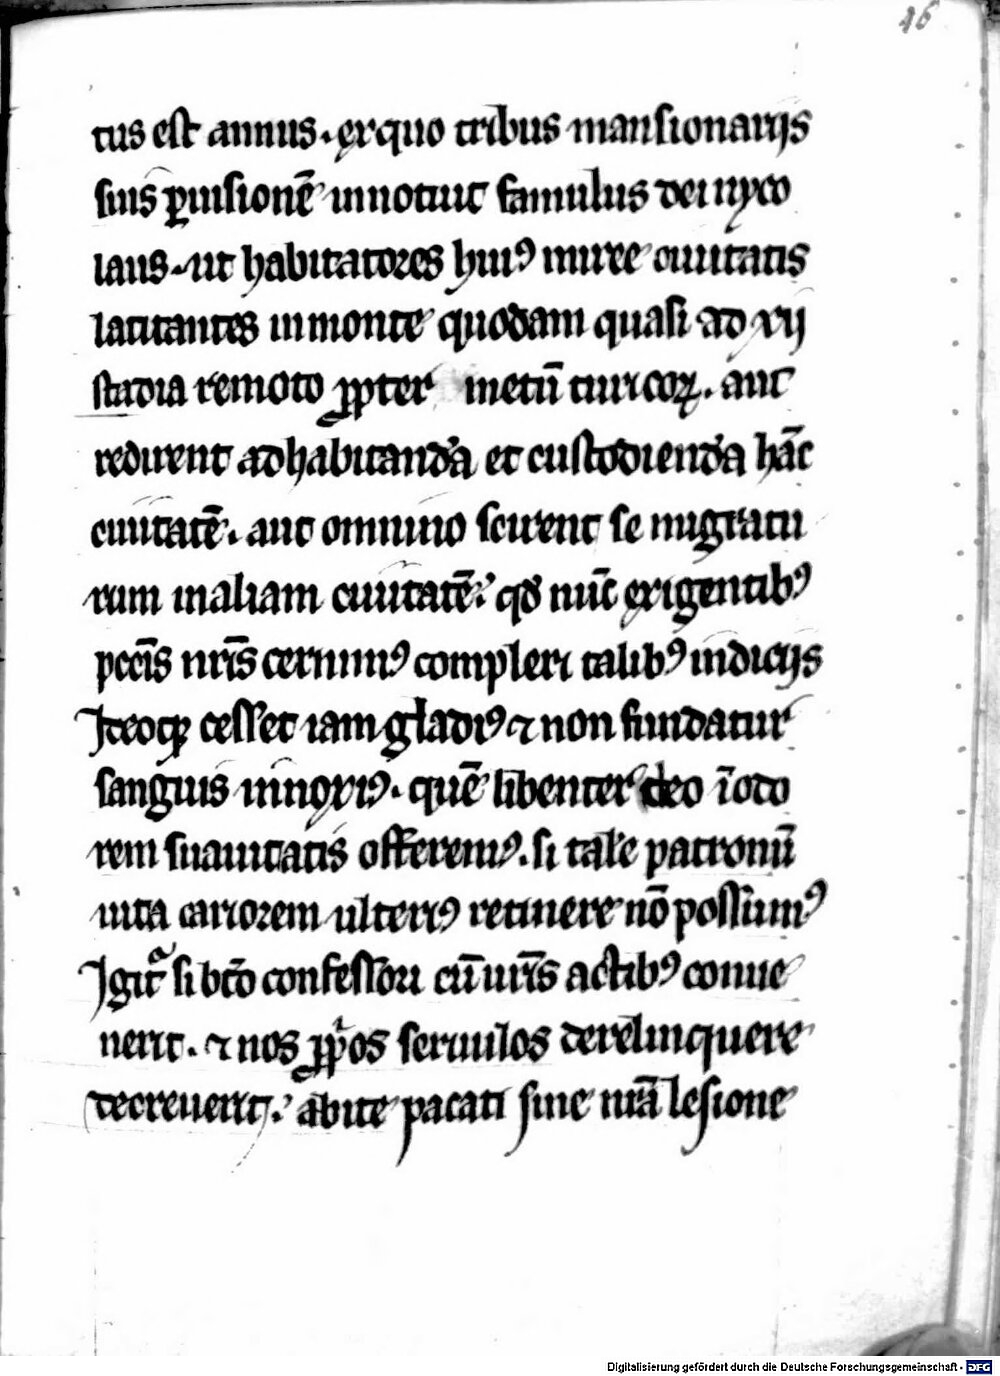 46
tus est annus. exquo tribus mansionarijs
suis ꝑuisionē innotuit famulus dei nyco
laus. ut habitatores huiꝰ miree ciuitatis
latitantes inmonte quodam quasi ad xij
stadia remoto ꝓpter metū turcoꝝ. aut
redirent adhabitandā et custodiendā hāc
ciuitatē. aut omnino scirent se migratu
rum inaliam ciuitatē. qđ nūc exigentibꝰ
pccīs nrīs cernimꝰ compleri talibꝰ indicijs
Jteoqꝫ cesset iam gladiꝰ ⁊ non fundatur
sanguis innoxiꝰ. quē libenter deo ī odo
rem suauitatis offeremꝰ. si tale patronū
uita cariorem ulteriꝰ retinere nō possumꝰ
Jgitᵃ si btō confessori cū uris̄ actibꝰ conue
nerit. ⁊ nos ꝓpⁱos seruulos derelinquere
decreuerit. abite pacati sine nrā lesione
Digitalisierung gefördert durch die Deutsche Forschungsgemeinschaft - DFG